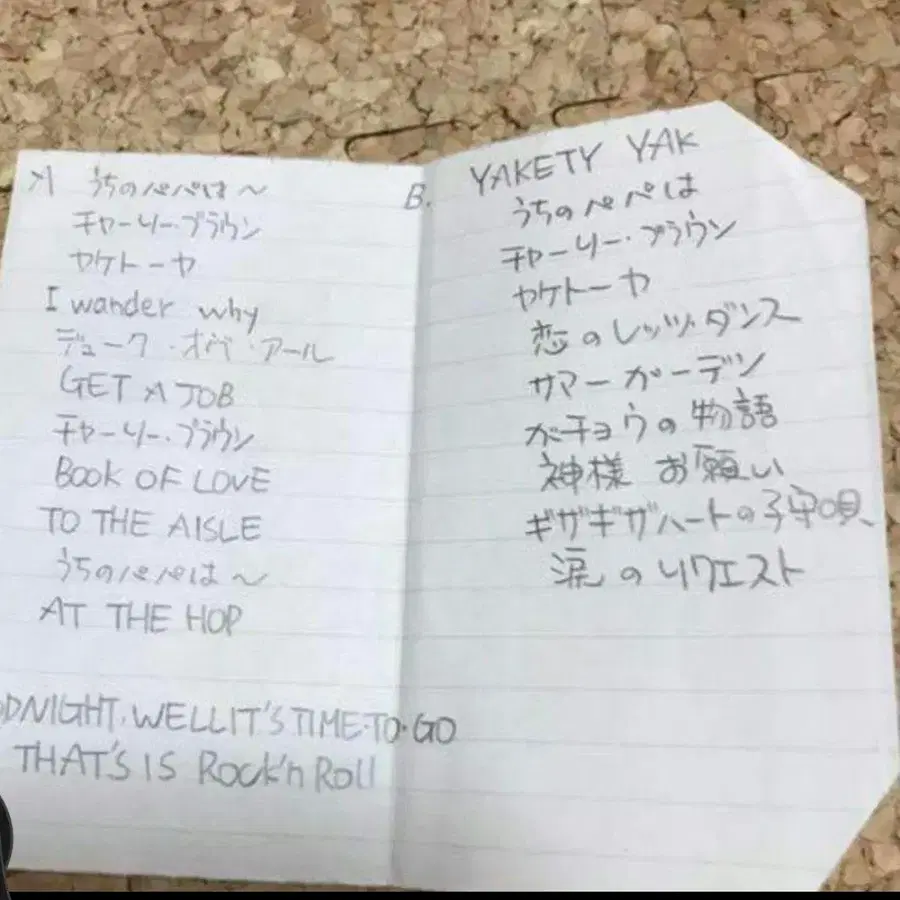 A うちのパパは〜
チャーリー・ブラウン
ヤケトーヤ
I wander why
デューク・オブ・アール
GET A JOB
チャーリー・ブラウン
BOOK OF LOVE
TO THE AISLE
うちのパパは〜
AT THE HOP
ODNIGHT, WELL IT'S TIME・TO・GO
THAT'S IS Rock'n Roll
B. YAKETY YAK
うちのパパは
チャーリー・ブラウン
ヤケトーヤ
恋のレッツ・ダンス
サマーガーデン
ガチョウの物語
神様 お願い
ギザギザハートの子守唄、
涙のリクエスト